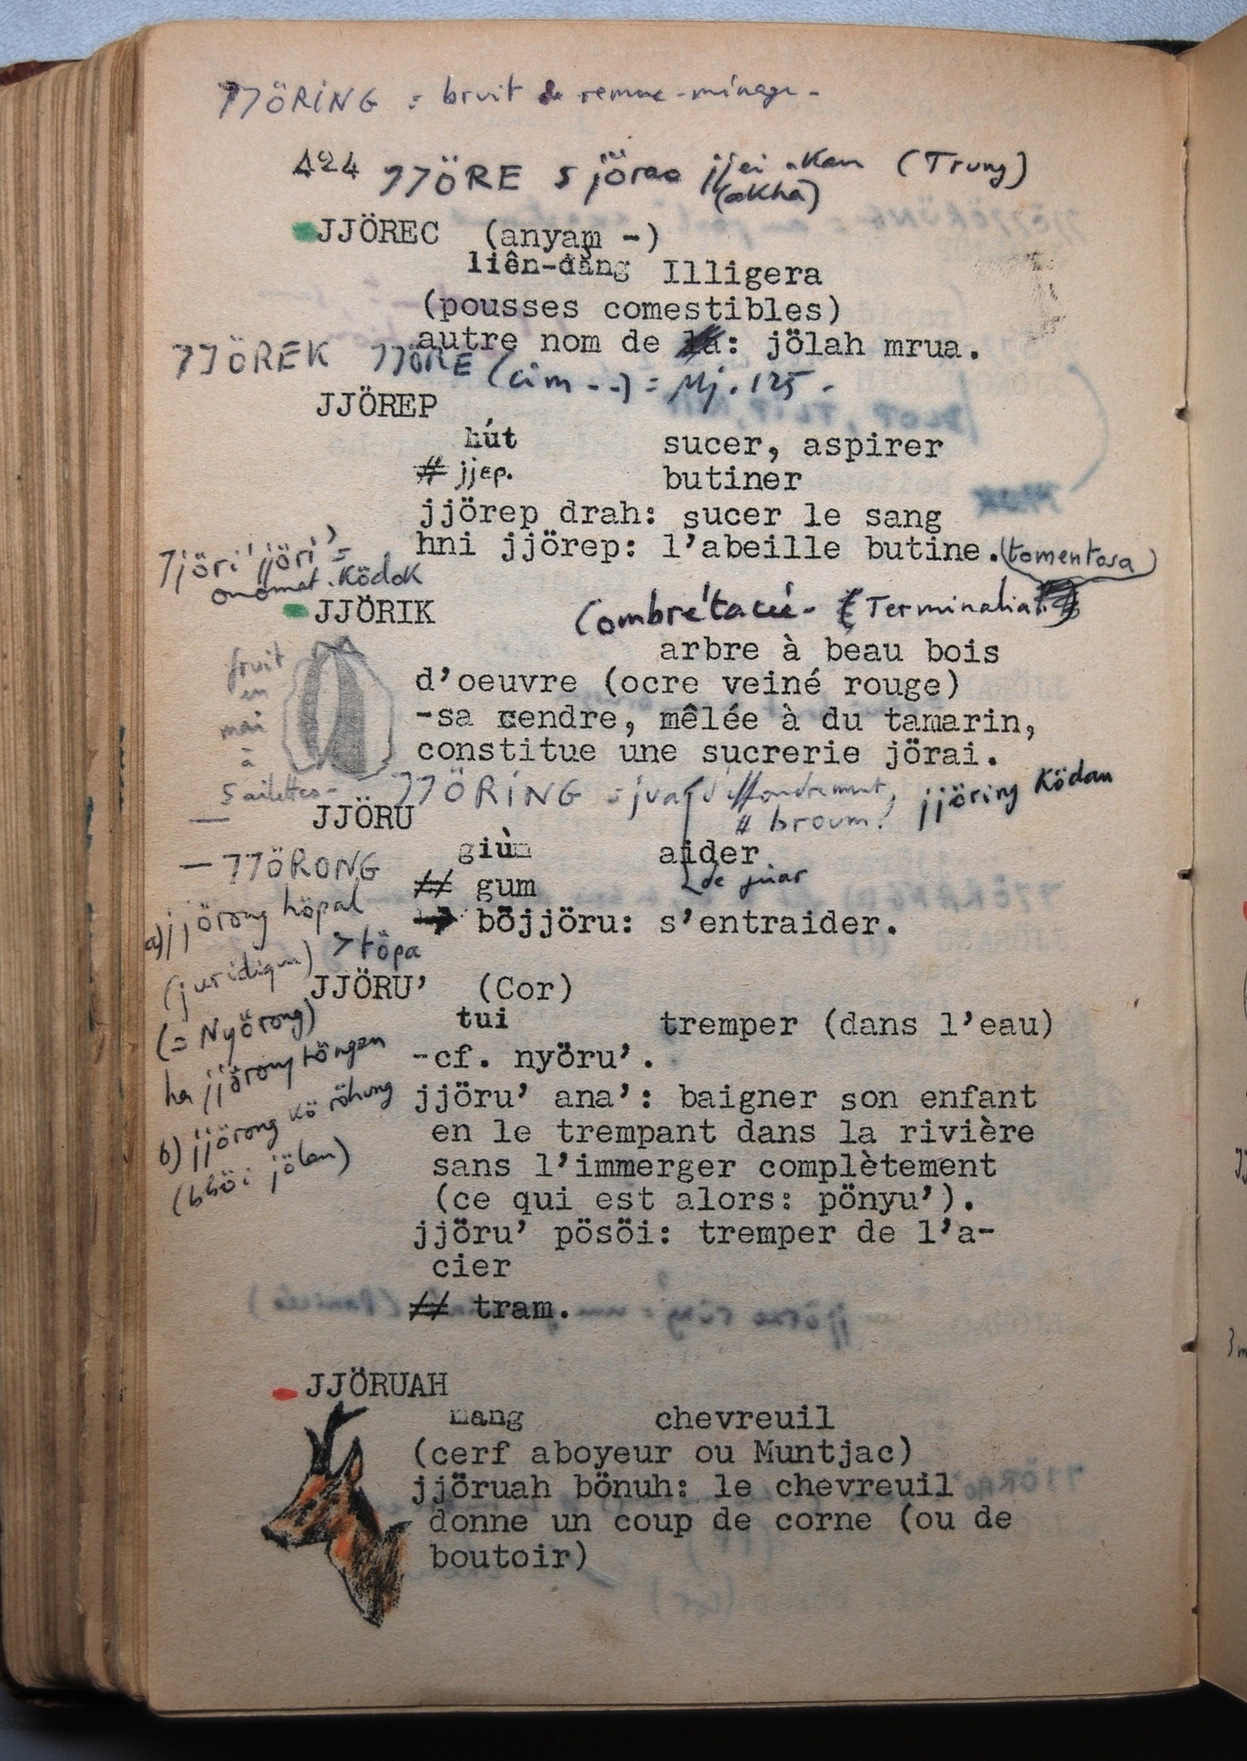 JJÖRING = bruit de remue-ménage -
424 JJÖRE s jörao jjei akan (Trung)
(akha)
JJÖREC (anyam -)
liên-đăng Illigera
(pousses comestibles)
autre nom de : jölah mrua.
JJÖREK JJÖRE (cim --) = Mj. 125 -
JJÖREP
hút sucer, aspirer
# jjep. butiner
jjörep drah: sucer le sang
hni jjörep: l'abeille butine. (tomentosa)
jjöri' jjöri' =
onomat. ködok
JJÖRIK Combrétacée - (Terminalia
arbre à beau bois
d'oeuvre (ocre veiné rouge)
-sa cendre, mêlée à du tamarin,
constitue une sucrerie jörai.
fruit
en
mai
à
5 ailettes -
JJÖRING = d'effondrement, jjöring ködan
# broum!
JJÖRU
giùm aider
// gum de jnar
→ böjjöru: s'entraider.
— JJÖRONG
a) jjörong höpal
(juridique) > töpa
(= Nyörong)
ha jjörong töngan
b) jjörong kö röhung
(bböi jölan)
JJÖRU' (Cor)
tui tremper (dans l'eau)
-cf. nyöru'.
jjöru' ana': baigner son enfant
en le trempant dans la rivière
sans l'immerger complètement
(ce qui est alors: pönyu').
jjöru' pösöi: tremper de l'a-
cier
// tram.
JJÖRUAH
mang chevreuil
(cerf aboyeur ou Muntjac)
jjöruah bönuh: le chevreuil
donne un coup de corne (ou de
boutoir)